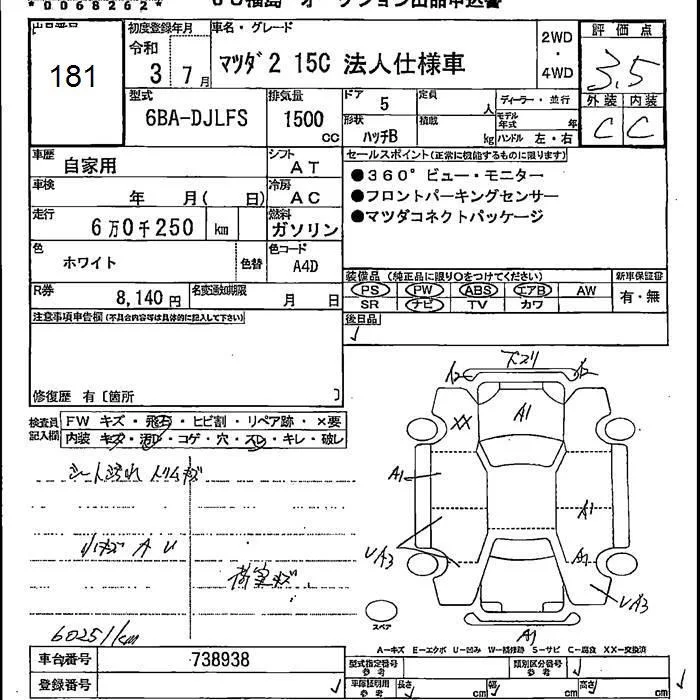 *0068262*
USS福島 オークション出品申込書
出品番号
181
初度登録年月
令和
3 7月
車名・グレード
マツダ2 15C 法人仕様車
2WD
・
4WD
評価点
3.5
外装 内装
C C
型式
6BA-DJLFS
排気量
1500
cc
ドア
5
定員
人
形状
ハッチB
積載
kg
ディーラー・並行
モデル年式 年
ハンドル 左・右
車歴
自家用
シフト
AT
車検
年 月( 日)
冷房
AC
走行
6万0千250 km
燃料
ガソリン
色
ホワイト
色替
色コード
A4D
R券
8,140円
名変通知期限
月 日
セールスポイント(正常に機能するものに限ります)
●360°ビュー・モニター
●フロントパーキングセンサー
●マツダコネクトパッケージ
装備品(純正品に限り○をつけてください)
新車保証書
PS PW ABS エアB AW
有・無
SR ナビ TV カワ
後日品
注意事項申告欄(不具合内容等は具体的に記入して下さい)
修復歴 有〔箇所 〕
検査員記入欄
FW キズ・飛石・ヒビ割・リペア跡・×要
内装 キズ・汚レ・コゲ・穴・スレ・キレ・破レ
シート汚れ トリムキズ
A U
荷室キズ
60251km
下スリ
A2 A2
A1
XX
A1
A1
UA3
A1
UA3
A1
スペア
A-キズ E-エクボ U-凹み W-補修跡 S-サビ C-腐食 XX-交換済
車台番号
738938
登録番号
型式指定番号
参考
類別区分番号
参考
車庫証明用
参考
長さ cm
幅 cm
高さ cm